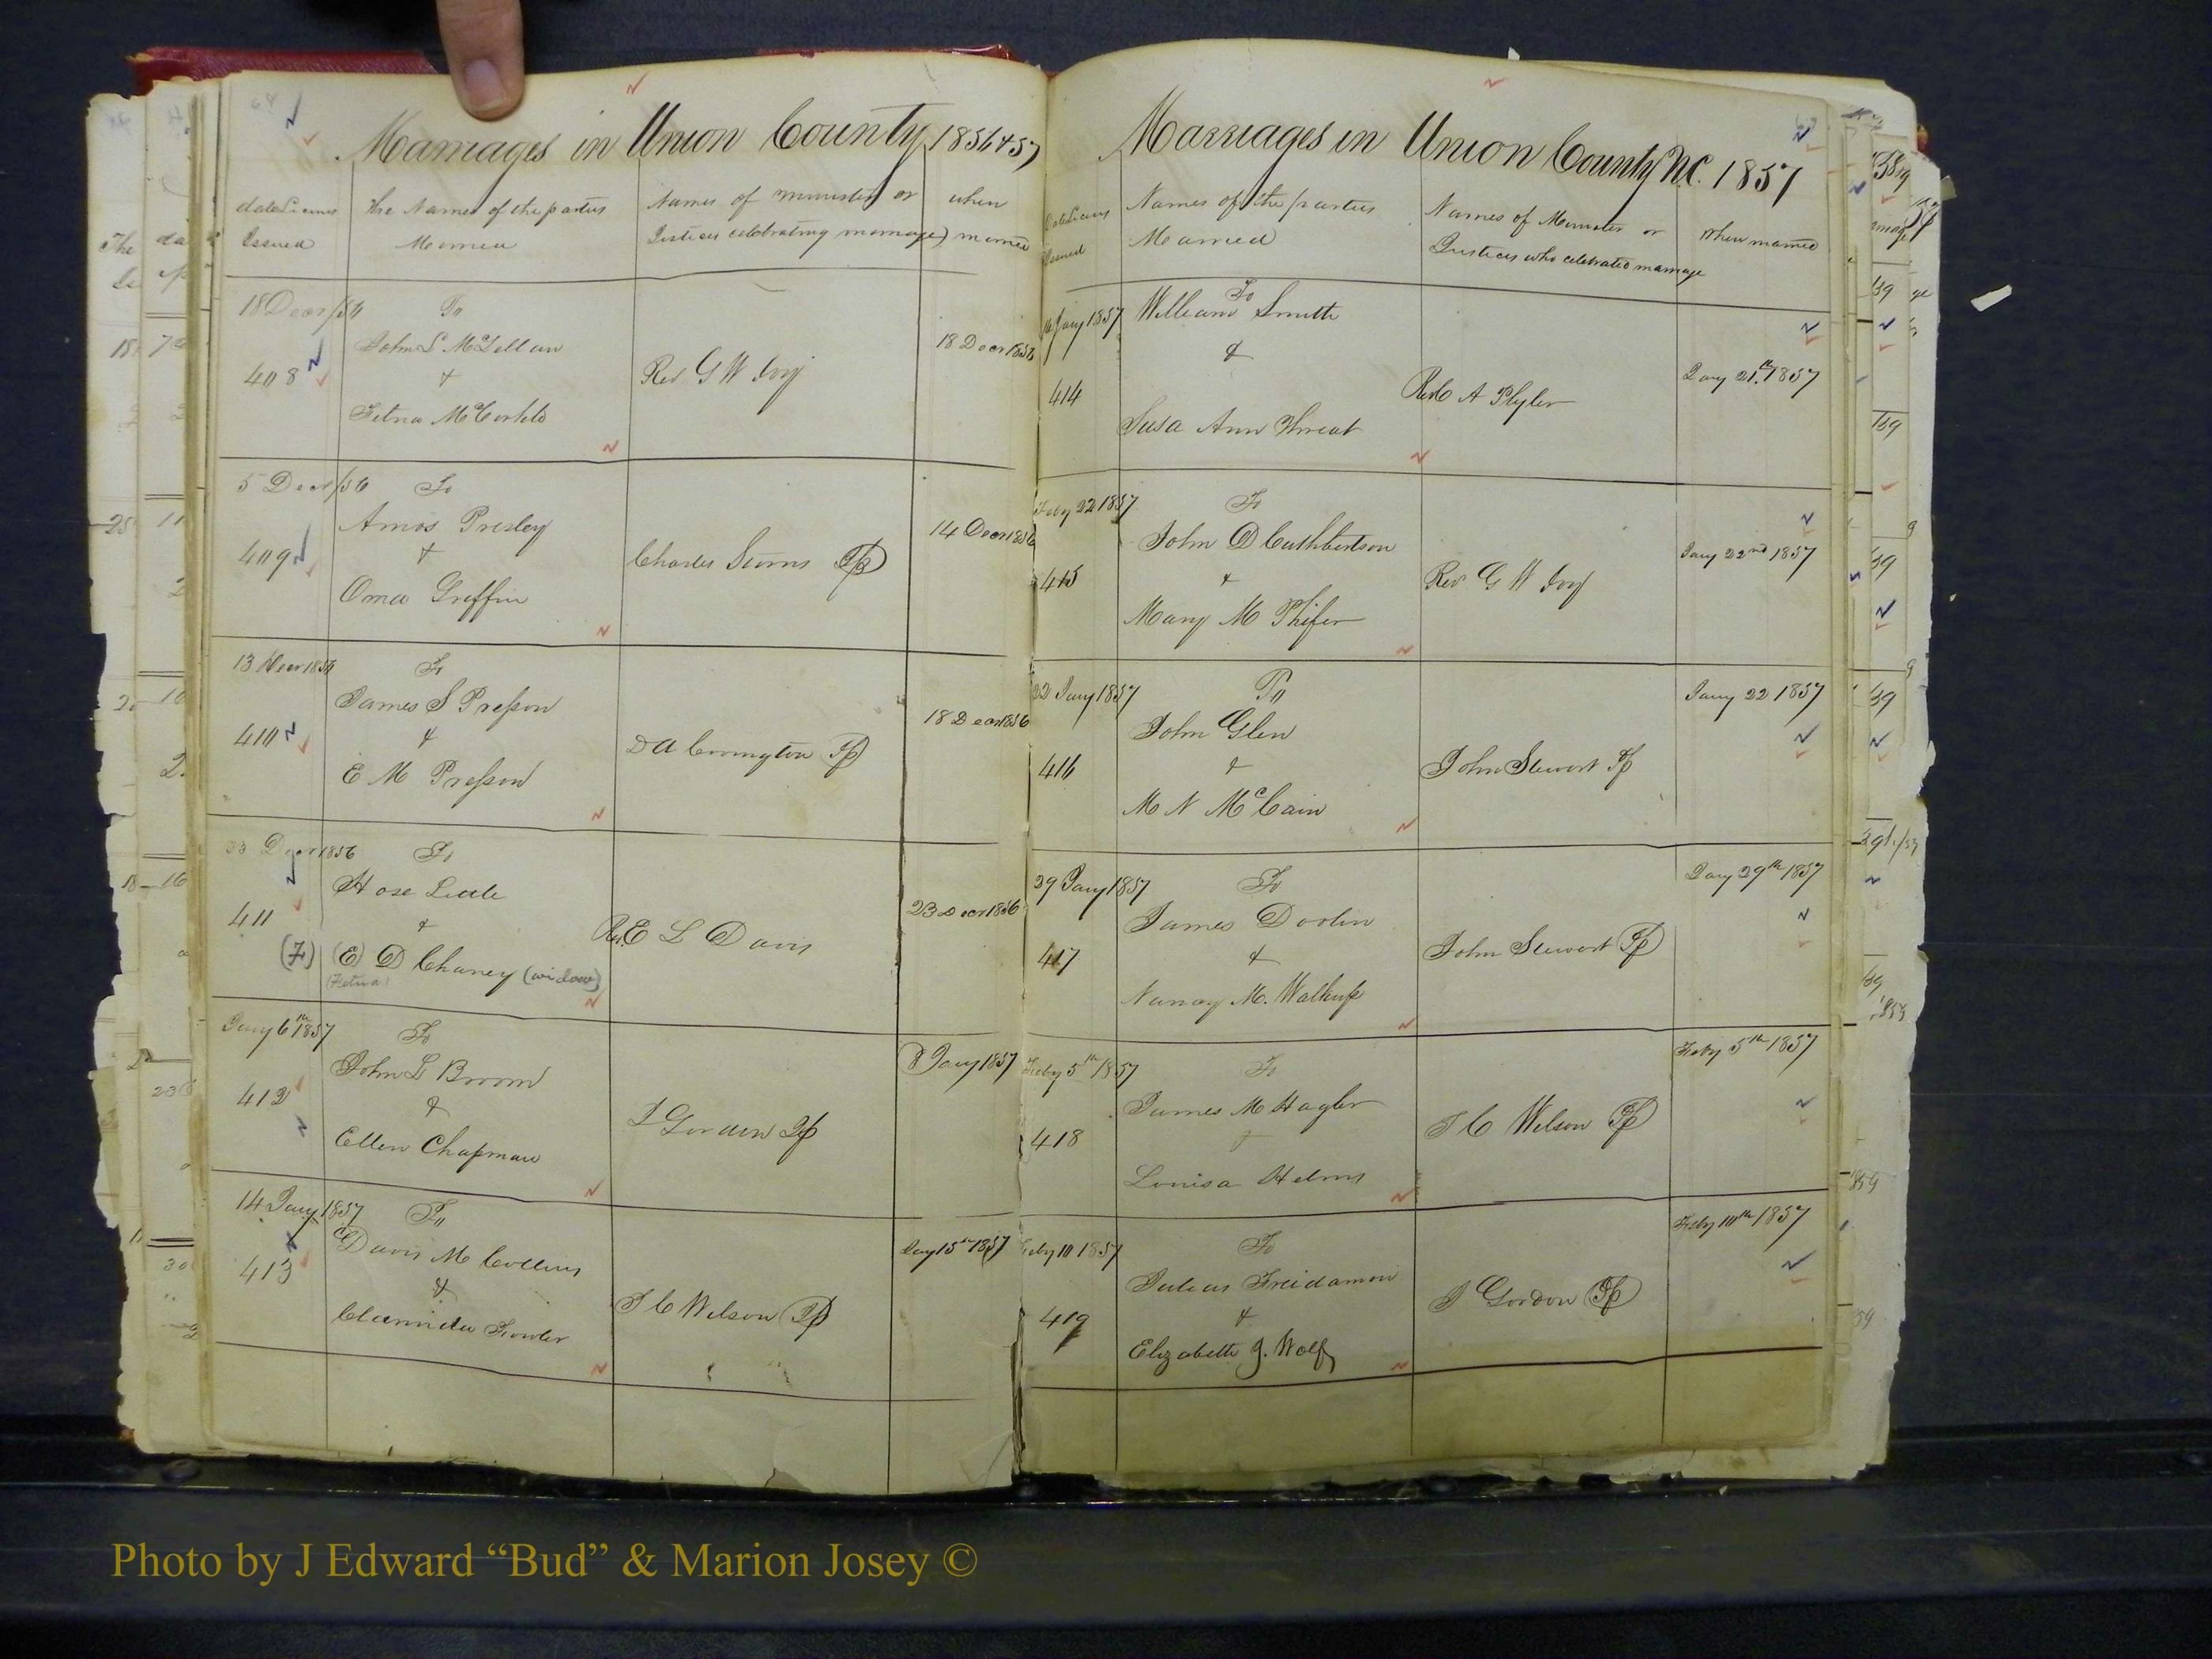 Marriages in Union County 1856 & 57
date Licens Issued
The Names of the parties Married
Names of minister or Justices celebrating marriage
when married
18 Decr/56
To
John L McLellan
&
408
Rev G W Ivy
18 Decr 1856
5 Decr/56
To
Amos Presley
&
Oma Griffin
409
Charles JP
14 Decr 1856
13 1856
To
James S Presson
&
E M Presson
410
D A Covington JP
18 Decr 1856
23 Decr 1856
To
Hose Little
&
(E) D Chaney (widow)
(F)
(Fetna)
411
Rev. E L Davis
23 Decr 1856
Jany 6th 1857
To
John L Broom
&
Ellen Chapman
412
JP
8 Jany 1857
14 Jany 1857
To
Davis M Collins
&
Fowler
413
J C Wilson JP
Jany 15th 1857
Marriages in Union County N.C. 1857
Date Licens Issued
Names of the parties Married
Names of Minister or Justices who celebrated marriage
When married
Jany 1857
To
William Smith
&
Susa Ann Threat
414
A Plyler
Jany 21st 1857
Feby 22 1857
To
John D Cuthbertson
&
Mary M Phifer
415
Rev G W Ivy
Jany 22nd 1857
22 Jany 1857
To
John Glen
&
M N McCain
416
John Stewart JP
Jany 22 1857
29 Jany 1857
To
James Doolin
&
Nancy M. Walkup
417
John Stewart JP
Jany 29th 1857
Feby 5th 1857
To
James M Hagler
&
Louisa Helms
418
J C Wilson JP
Feby 5th 1857
Feby 10 1857
To
&
Elizabeth J. Wolf
419
J Gordon JP
Feby 10th 1857
Photo by J Edward “Bud” & Marion Josey ©